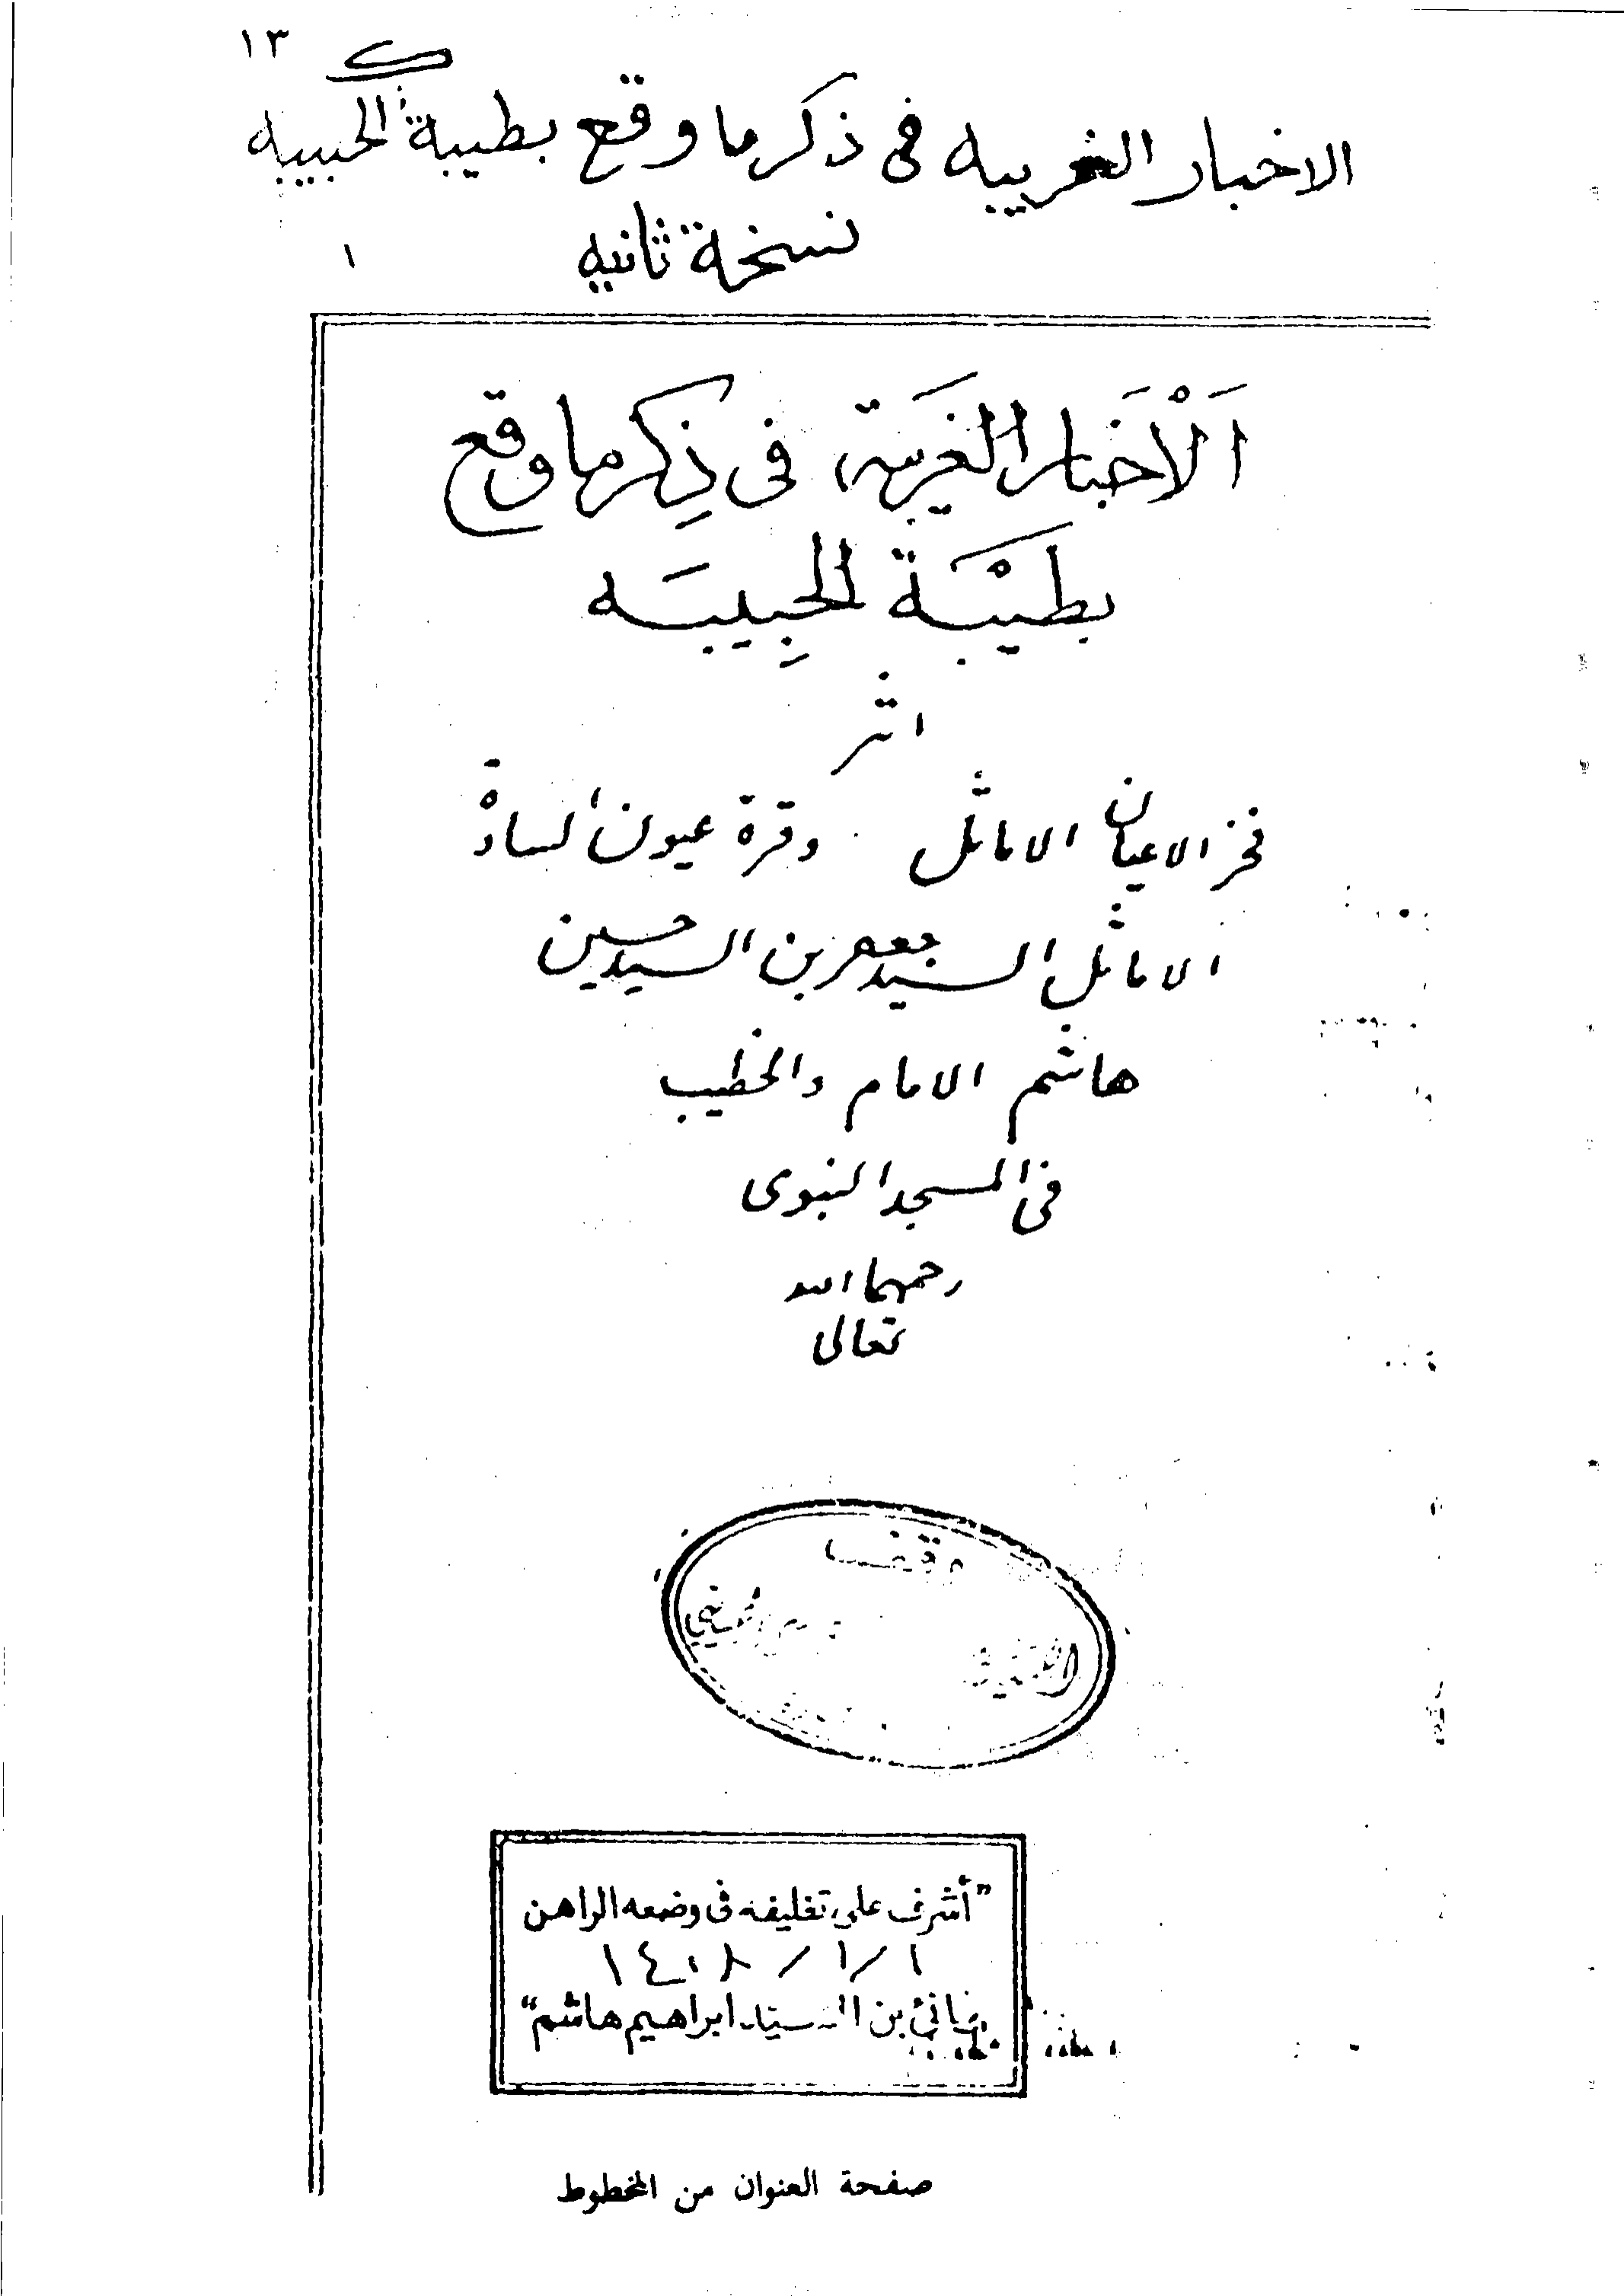 ١٣
الاخبار الغريبه فى ذكر ما وقع بطيبة الحبيبه
نسخة ثانيه
١
اَلْاَخبَار الغَريبَة فى ذِكر ما وقع
بطَيْبَة الحبِيبَه
اثر
فخر الاعيان الاماثل وقرة عيون السادْة
الاماثل السيد جعفر بن السيد حسين
هاشم الامام والخطيب
فى المسجد النبوى
رحمهما الله
تعالى
وقف
"أشرف على تغليفه فى وضعه الراهن
١/١/١٤٠٨
بن السيد ابراهيم هاشم"
صفحة العنوان من المخطوط